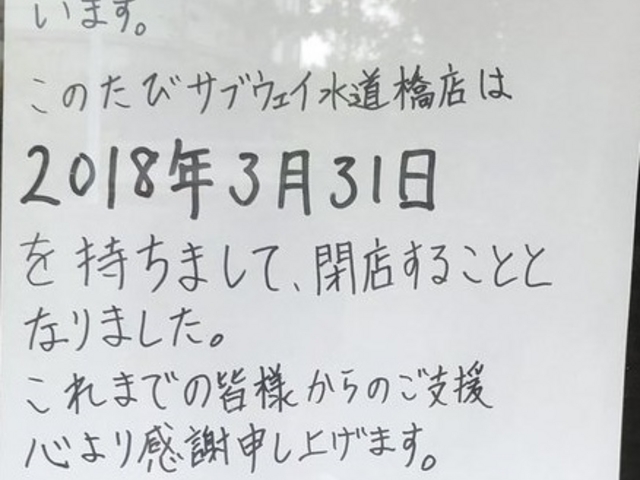 います。
このたびサブウェイ水道橋店は
2018年3月31日
を持ちまして、閉店することと
なりました。
これまでの皆様からのご支援
心より感謝申し上げます。